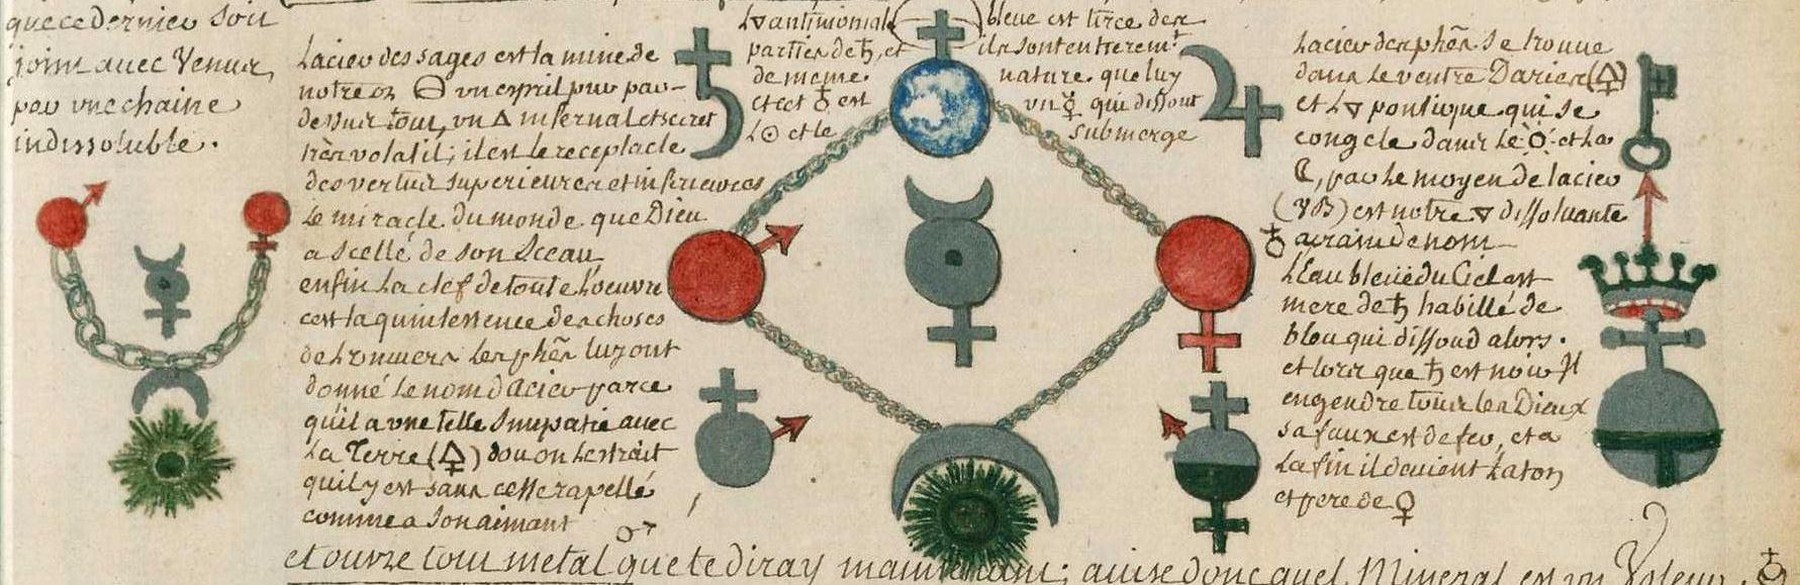 que ce dernier soit
joint avec Venus,
par une chaine
indissoluble.
Lacier des sages est la mine de
notre or 🜔 un esprit pur par-
dessus tout, un 🜂 infernal et secret
très volatil; il est le receptacle
des vertus superieures et inferieures
Le miracle du monde que Dieu
a scellé de son sceau
enfin la clef de toute l'oeuvre
cest la quintessence des choses
de l'univers les phẽs luy ont
donné le nom dacier parce
quil a une telle simpatie avec
La Terre (🜍) dou on lestrait
quil y est sans cesse rapellé
comme a son aimant
♂
L🜄 antimoniale
parties de ♄, et
de meme.
et cet ♁ est
L☉ et le
bleue est tirée des
ils sont entierem.t
nature que luy
un ☿ qui dissout
submerge
Lacier des phẽs se trouve
dans le ventre Daries (🜍)
et L🜄 pontique qui se
congele dans le ☉ et la
☾, par le moyen de lacier
est notre 🜄 dissoluante
L'Eau bleüe du Ciel est
mere de ♄ habillé de
bleu qui dissoud alors.
et lors que ♄ est noir Il
engendre tous les Dieux
sa faux est de feu, et a
la fin il devient Laton
et pere de ♀
et ouvre tout metal que te diray maintenant; avise donc quel Mineral est un